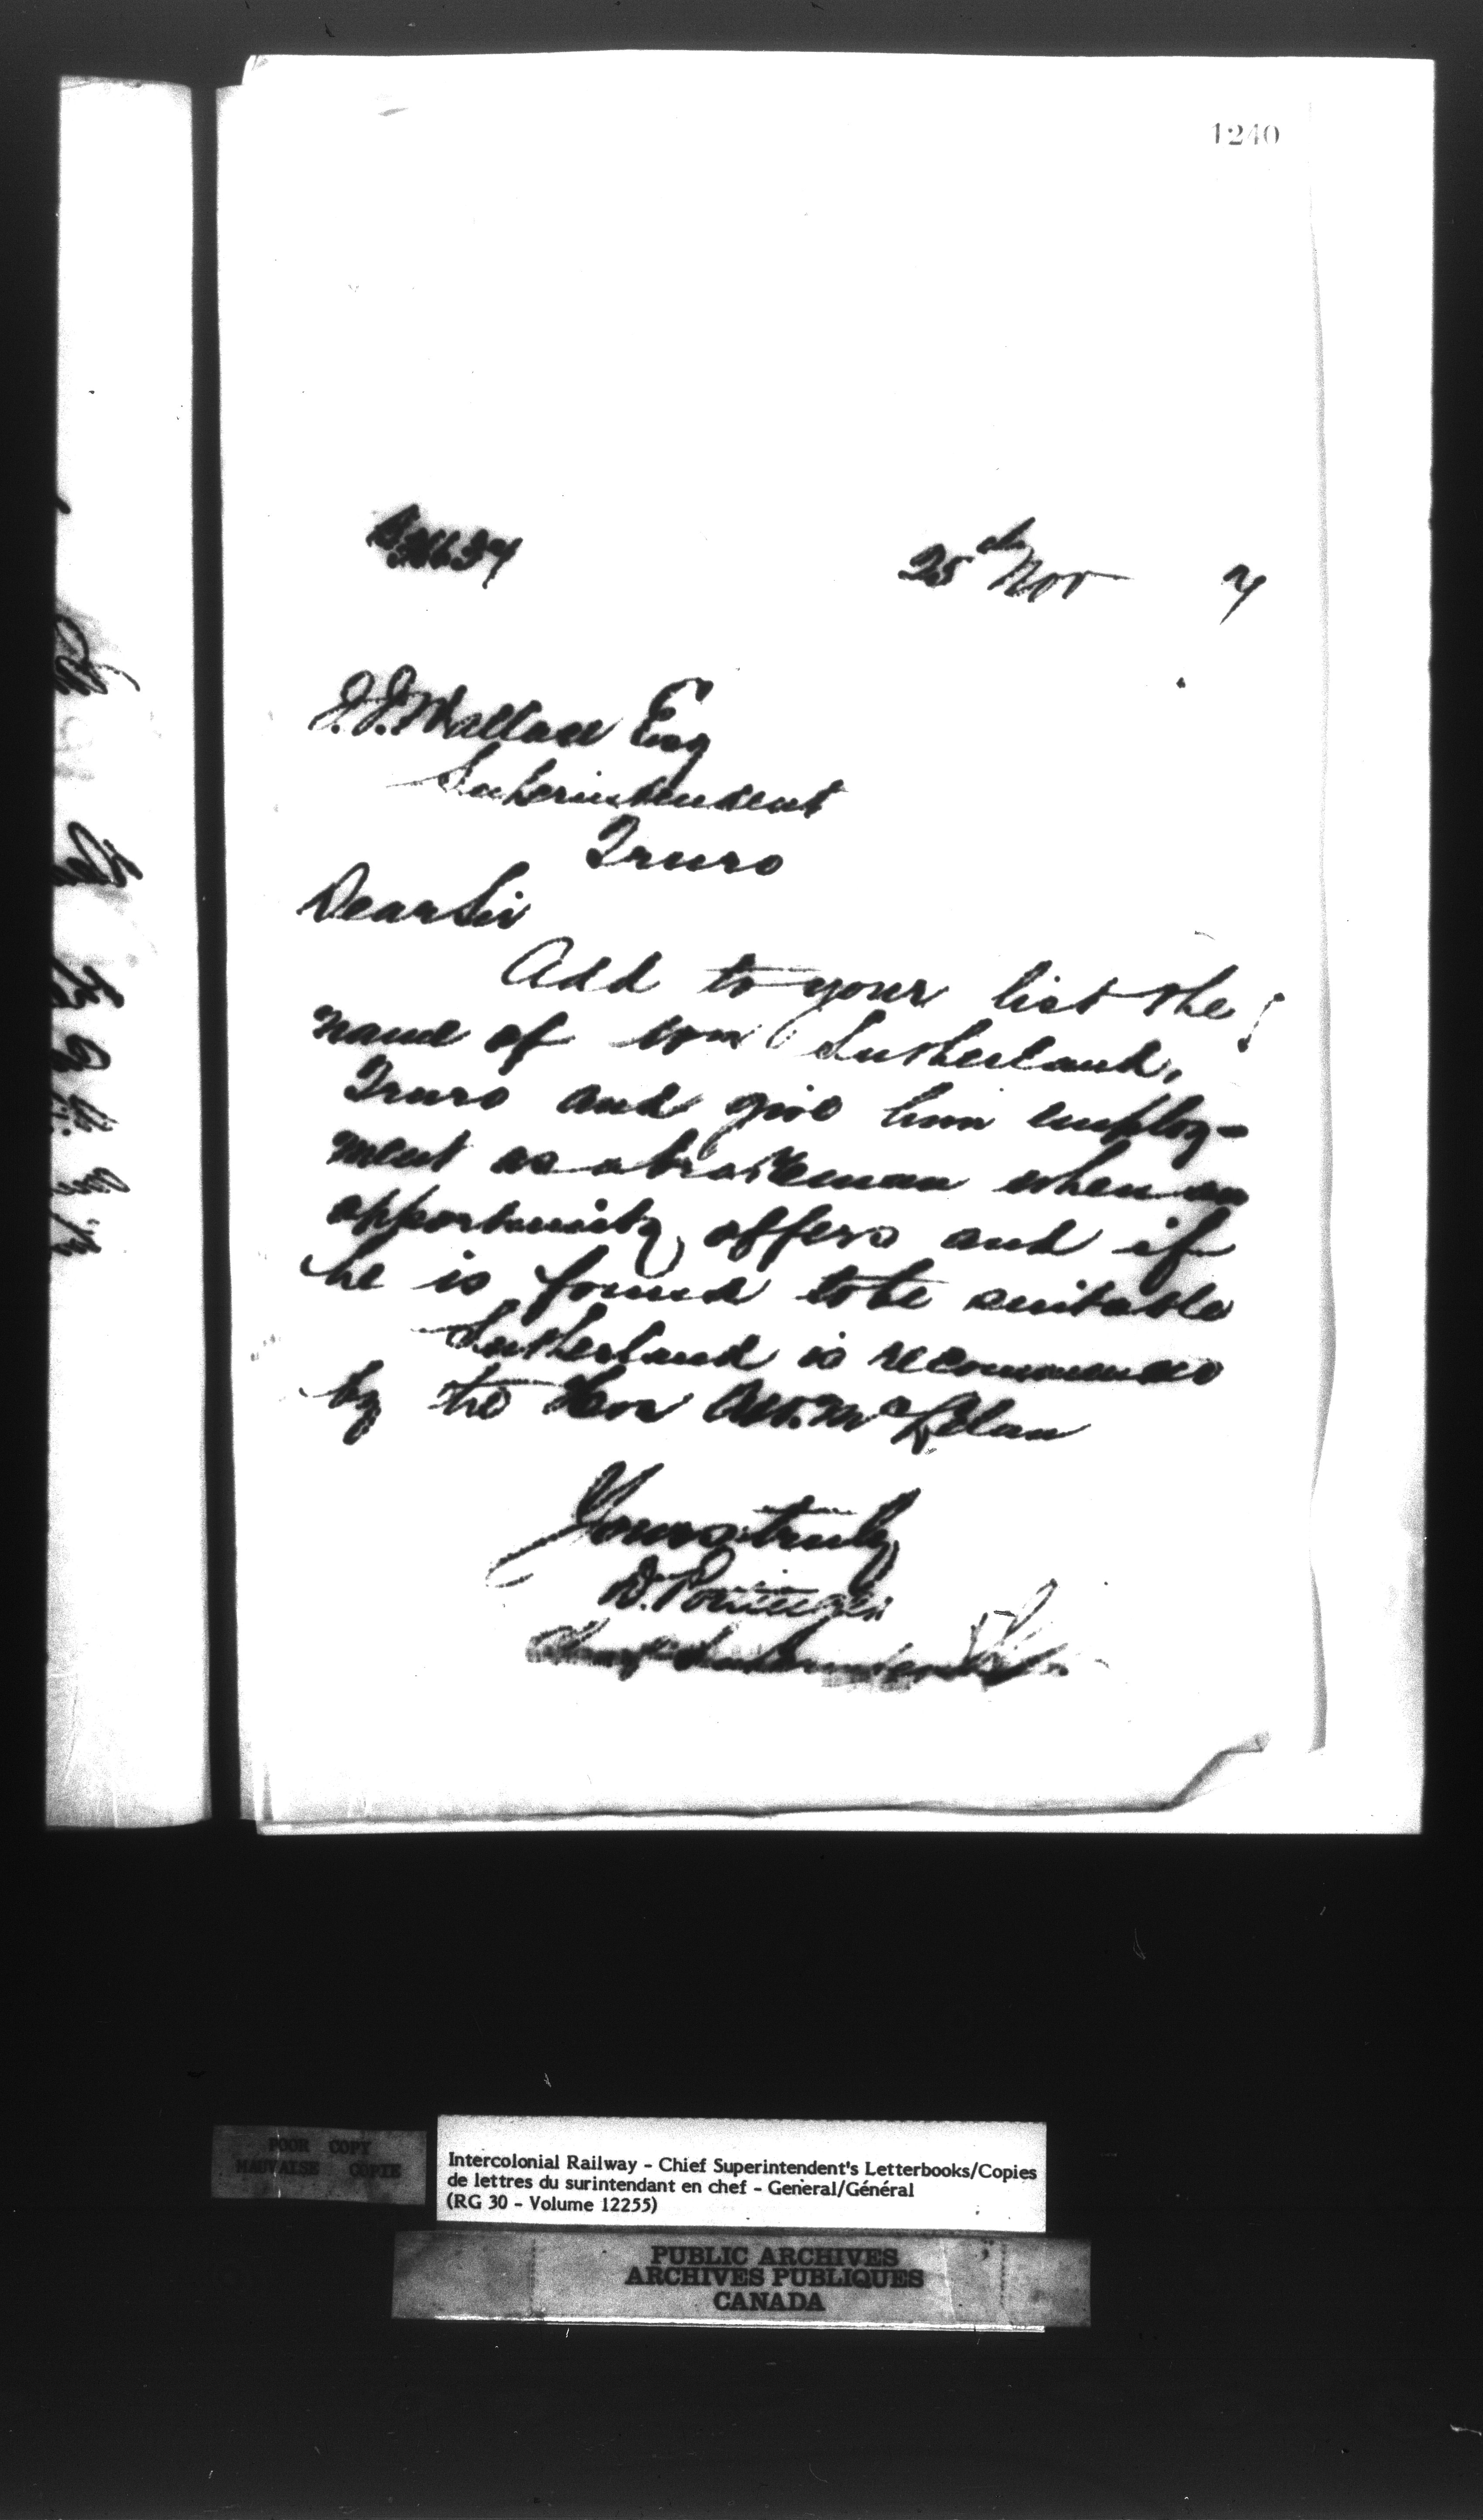 1240
25th Nov 7
J.J. Wallace Esq
Superintendent
Truro
Dear Sir
Add to your list the
name of Wm Sutherland,
Truro and give him employ-
ment as a brakeman when an
opportunity offers and if
he is found to be suitable
Sutherland is recommended
by the Hon A.W. McLelan
Yours truly
D. Pottinger
Chief Superintendent
POOR COPY
MAUVAISE COPIE
Intercolonial Railway - Chief Superintendent's Letterbooks/Copies
de lettres du surintendant en chef - General/Général
(RG 30 - Volume 12255)
PUBLIC ARCHIVES
ARCHIVES PUBLIQUES
CANADA